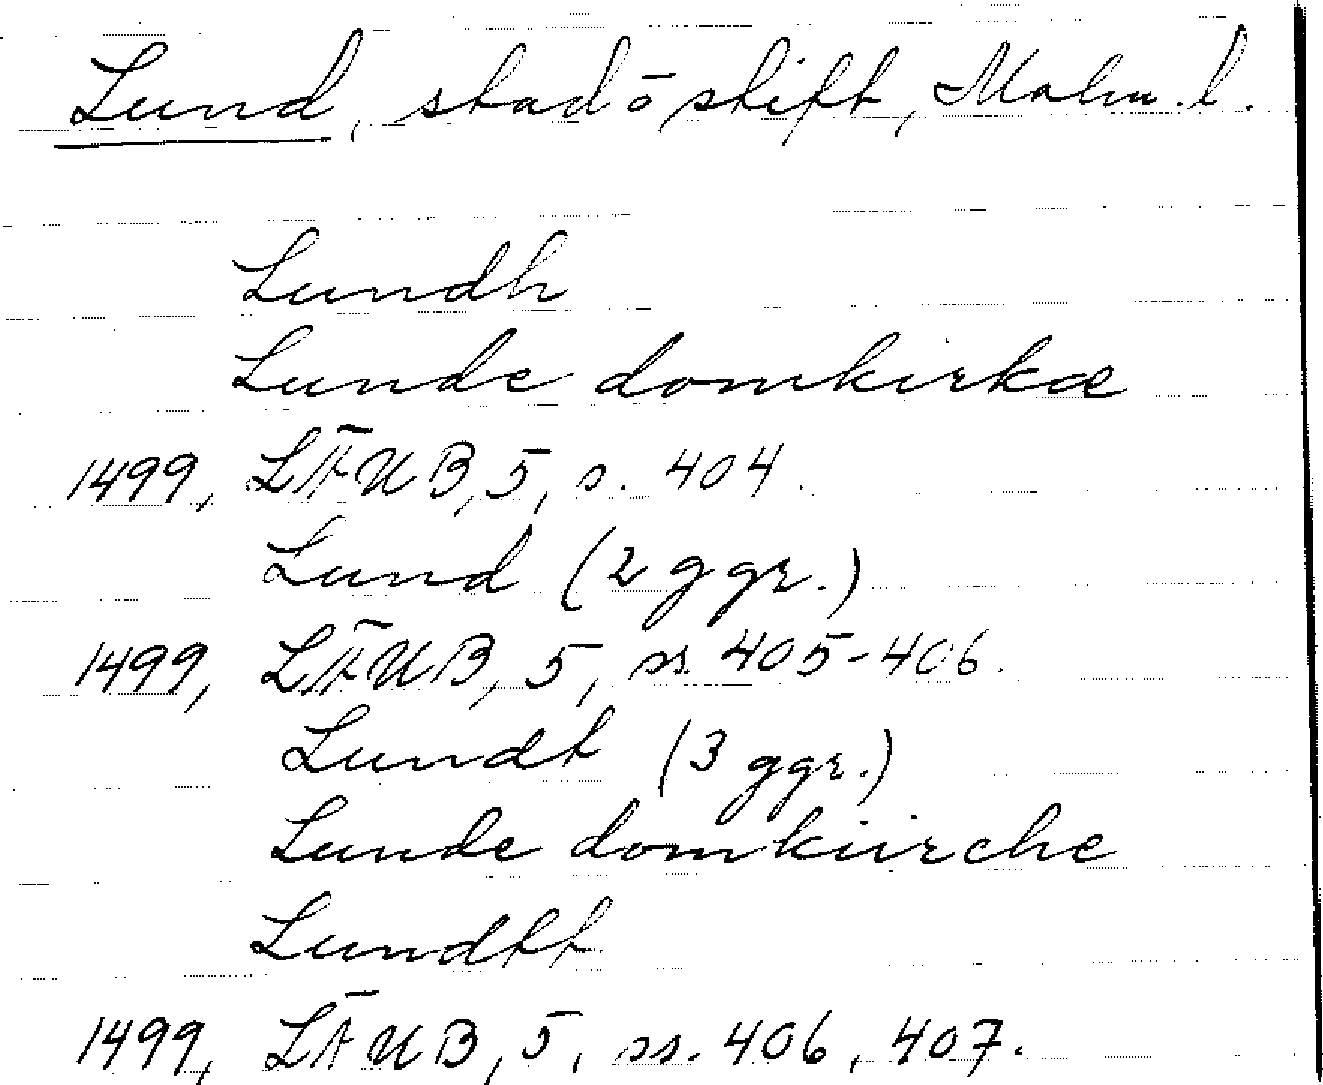 Lund, stad ō stift, Malm. l.
Lundh
Lunde domkirkæ
1499, LÄUB, 5, s. 404.
Lund (2 ggr.)
1499, LÄUB, 5, ss. 405-406.
Lundt (3 ggr.)
Lunde domkiirche
Lundtt
1499, LÄUB, 5, ss. 406, 407.